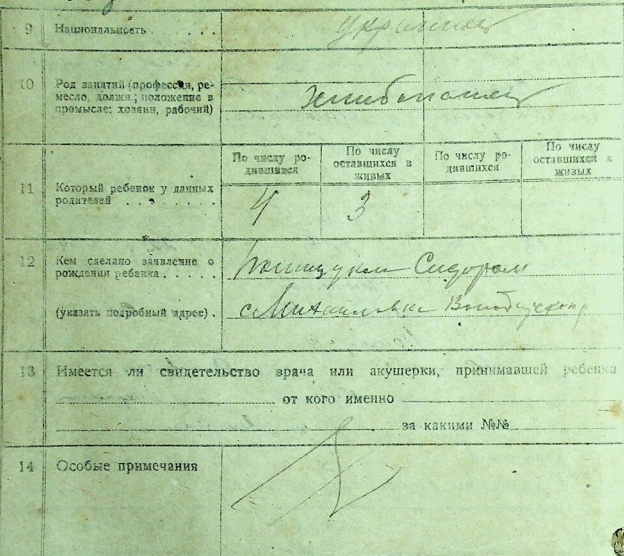 9 Национальность . . . украинец
10 Род занятий (профессия, ре-
месло, должн.; положение в
промысле: хозяин, рабочий)
хлибопашец
11 Который ребенок у данных
родителей . . . . . . . .
По числу ро-
дившихся
По числу
оставшихся в
живых
По числу ро-
дившихся
По числу
оставшихся в
живых
4 3
12 Кем сделано заявление о
рождении ребенка . . . . .
Сидором
(указать подробный адрес) .
с Михайловка
13 Имеется ли свидетельство врача или акушерки, принимавшей ребенка
от кого именно
за какими №№
14 Особые примечания